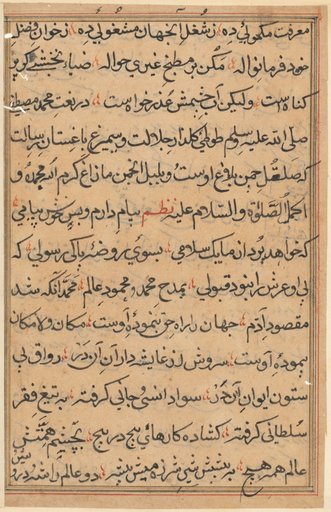 معرفت مکحولی ده زشغل اینجهان مشغولی ده زخوان فضل
خود فرما نواله مکن بر مطبخ غیری حواله ضیاء نخشبی گر پر
کناه است ولیکن آن جمیش عذر خواه است در نعت محمد مصطفی
صلی الله علیه وسلم طوطی گلذار جلالت و سیمرغ باغستان رسالت
کلصلصل چمن بلاغ اوست و بلبل انجمن مازاغ کرم الله محمد و
اجمل الصلوة والسلام علیه نظم پیام دارم و بس خوش پیامی
که خواهد بود از ما یک سلامی بسوی روضهٔ پاکی رسولی که
بی او عرش را نبود قبولی مدح محمد و محمود عالم محمد آنکه شد
مقصود آدم جهان را راه حق بنمودهٔ اوست مکان ولامکان
پیمودهٔ اوست سروش از غایشه داران آن در رواق بی
ستون ایوان آن در سواد انس و جانی گرفته به تیغ فقر
سلطانی گرفته کشاده کارهای پیچ در پیچ بچشم همتش
عالم همه هیچ دو عالم